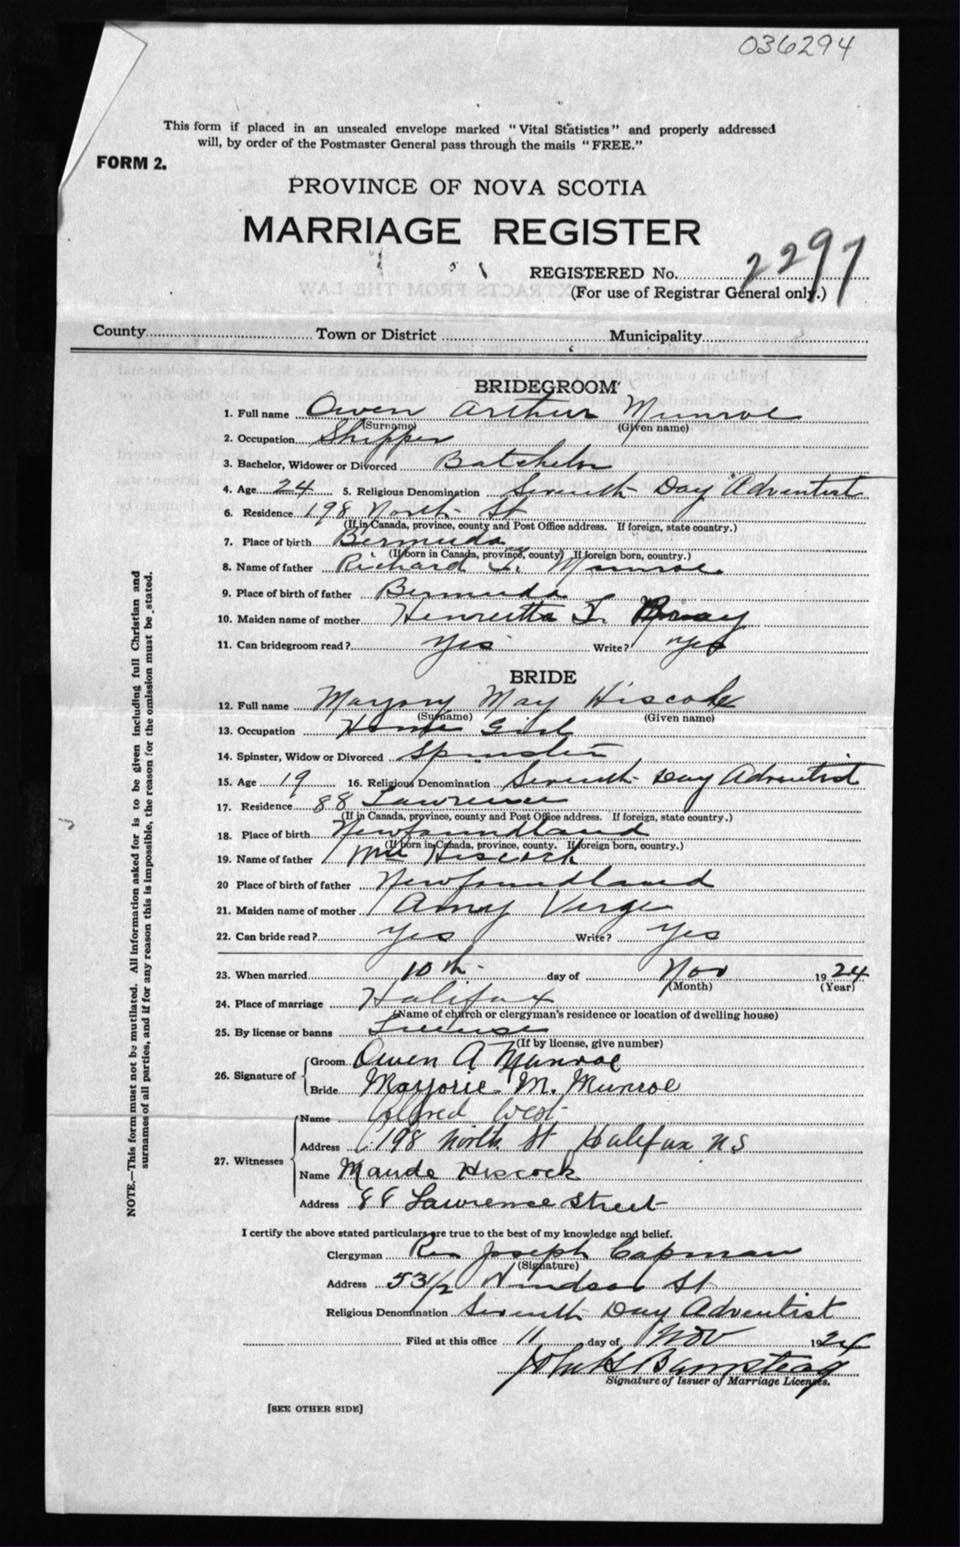 036294
This form if placed in an unsealed envelope marked "Vital Statistics" and properly addressed
will, by order of the Postmaster General pass through the mails "FREE."
FORM 2.
PROVINCE OF NOVA SCOTIA
MARRIAGE REGISTER
REGISTERED No. 2297
(For use of Registrar General only.)
County Town or District Municipality
BRIDEGROOM
1. Full name Owen Arthur Munroe
(Surname) (Given name)
2. Occupation Shipper
3. Bachelor, Widower or Divorced Batchelor
4. Age 24 5. Religious Denomination Seventh Day Adventist
6. Residence 198 North St
(If in Canada, province, county and Post Office address. If foreign, state country.)
7. Place of birth Bermuda
(If born in Canada, province, county) If foreign born, country.)
8. Name of father Richard T. Munroe
9. Place of birth of father Bermuda
10. Maiden name of mother Henrietta T.
11. Can bridegroom read? Yes Write? Yes
BRIDE
12. Full name Marjory May Hiscock
(Surname) (Given name)
13. Occupation Home Girl
14. Spinster, Widow or Divorced Spinster
15. Age 19 16. Religious Denomination Seventh Day Adventist
17. Residence 88 Lawrence
(If in Canada, province, county and Post Office address. If foreign, state country.)
18. Place of birth Newfoundland
(If born in Canada, province, county. If foreign born, country.)
19. Name of father Hiscock
20 Place of birth of father Newfoundland
21. Maiden name of mother Amy Verge
22. Can bride read? Yes Write? Yes
23. When married 10th day of Nov 1924
(Month) (Year)
24. Place of marriage Halifax
(Name of church or clergyman's residence or location of dwelling house)
25. By license or banns License
(If by license, give number)
26. Signature of Groom Owen A Munroe
Bride Marjorie M. Munroe
27. Witnesses Name West
Address 198 North St Halifax NS
Name Maude Hiscock
Address 88 Lawrence Street
I certify the above stated particulars are true to the best of my knowledge and belief.
Clergyman Rev Joseph Capman
(Signature)
Address 53½ Windsor St
Religious Denomination Seventh Day Adventist
Filed at this office 11 day of Nov 1924
Signature of Issuer of Marriage Licenses.
[SEE OTHER SIDE]
NOTE.—This form must not be mutilated. All information asked for is to be given including full Christian and
surnames of all parties, and if for any reason this is impossible, the reason for the omission must be stated.